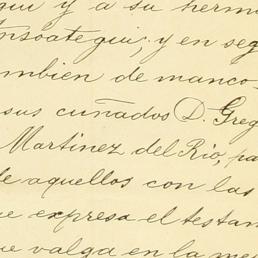 qui y a su herm
Ansoategui; y en seg
ambien de manco
sus cuñados D. Greg
Martinez del Rio, pa
de aquellos con las
ue expresa el testan
ue valga en la me